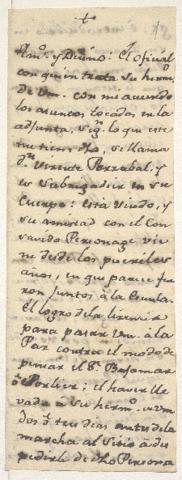 Am.º y Dueño: El oficial
con quien trata su herm.
de Vm. con me acuerdo
los asuntos tocados en la
adjunta, seg.n lo que este
me tiene dho, se llama
d.n Vicente Perrabal, y
es Subrigadier en su
Cuerpo: esta viudo, y
su amistad con el Con-
savido Personage vie-
ne desde los pueriles
años, en que parece fue-
ron juntos à la Escuela.
El logro de la licencia
para pasar Vm. à la
Paz contra el modo de
pensar el S.r Bajamar
é Porlier; el haver lle-
vado a su herm.º
dos ó tres dias antes de la
marcha al Sitio a des-
pedirse de dho Persona